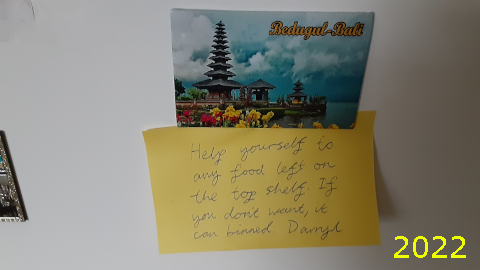 Bedugul-Bali
Help yourself to
any food left on
the top shelf. If
you don't want, it
can binned Darryl
2022